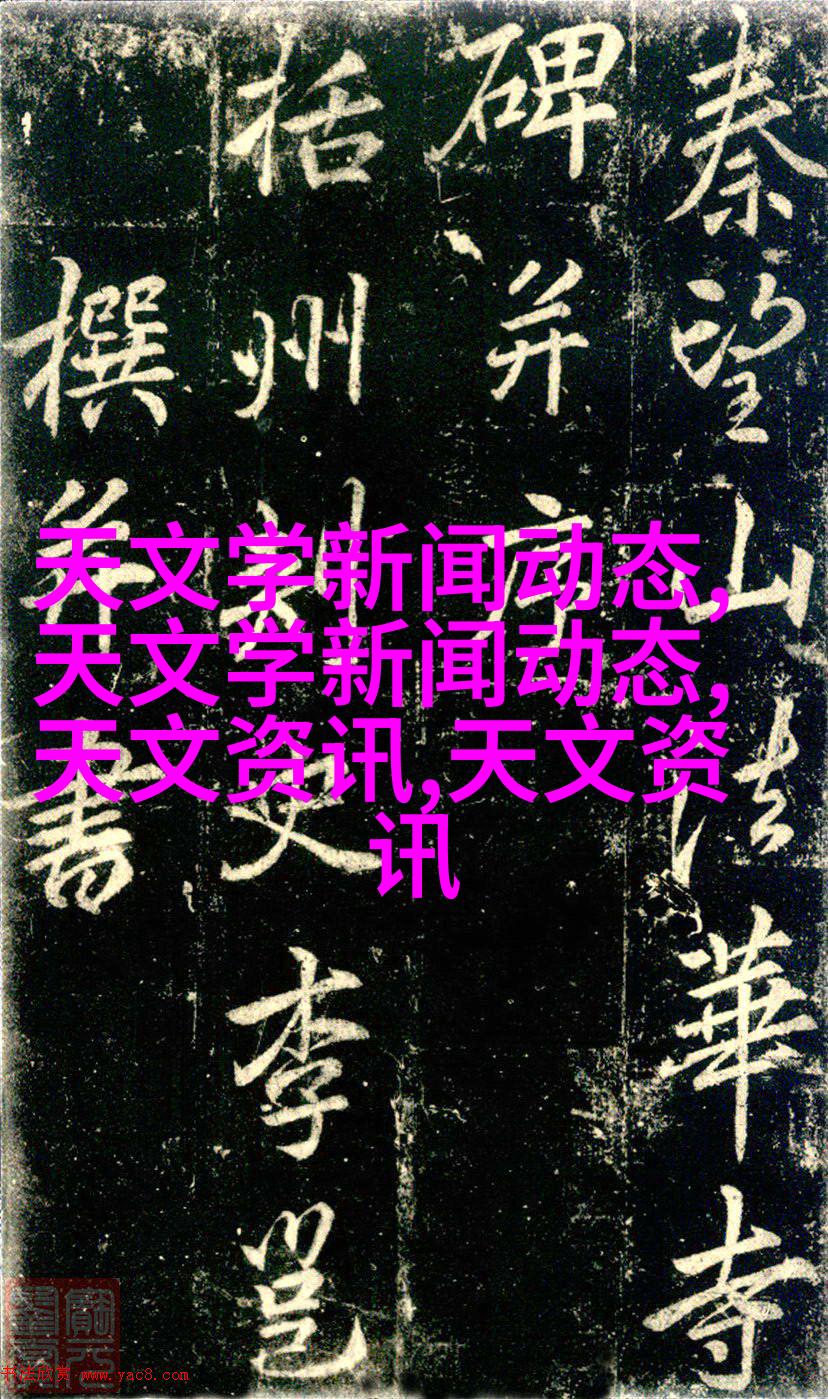 秦望山法華寺
碑并序
括州刺史李邕
撰并書
天文学新闻动态,
天文学新闻动态,
天文资讯,天文资
讯
书法欣赏 www.yac8.com